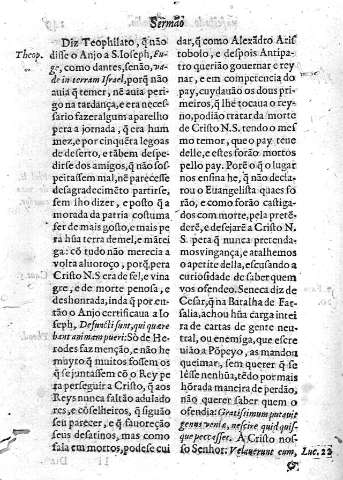 Sermaõ
Theop.
Diz Teophilato, q̃ não
disse o Anjo a S. Ioseph, Fu-
ge, como dantes, senão, va-
de in terram Israel, porq̃ não
auia q̃ temer, nẽ auia perigo
na tardança, & era neces-
sario fazer algum aparelho
pera a jornada, q̃ era hum
mez, e por cinquẽta legoas
de deserto, e tãbem despe-
dirse dos amigos, q̃ não sos-
peitassem mal, nẽ parecesse
desagradecimẽto partirse,
sem lho dizer, e posto q̃ a
morada da patria costuma
ser de mais gosto, e mais pe-
ra hũa terra de mel, e mãtei-
ga: cõ tudo não merecia a
volta aluoroço, porq̃ pera
Cristo N.S. era de fel, e vina
gre, e de morte penosa, e
deshonrada, inda q̃ por en-
tão o Anjo certificaua a Io-
seph, Defuncti sunt, qui quære
bant animam pueri: Sò de He-
rodes faz menção, e não he
muyto q̃ muitos fossem os
q̃ se juntassem cõ o Rey pe
ra perseguir a Cristo, q̃ aos
Reys nunca faltão adulado
res, e cõselheiros, q̃ siguão
seu parecer, e q̃ fauoreção
seus desatinos, mas como
fala em mortos, podese cui
dar, q̃ como Alexãdro Aris
tobolo, e despois Antipa-
tro querião gouernar e rey
nar, e em competencia do
pay, cuydauão os dous pri-
meiros, q̃ lhe tocaua o rey-
no, podião tratar da morte
de Cristo N.S. tendo o mes-
mo temor, que o pay teue
delle, e estes forão mortos
pello pay. Porẽ o q̃ o lugar
nos ensina he, q̃ não decla-
rou o Euangelista quaes fo
rão, e como forão castiga-
dos com morte, pela pretẽ-
derẽ, e desejarẽ a Cristo N.
S. pera q̃ nunca pretenda-
mos vingança, e atalhemos
o aperite della, escusando a
curiosidade de saber quem
vos ofendeo. Seneca diz de
Cesar, q̃ na Batalha de Far-
salia, achou hũa carga intei
ra de cartas de gente neu-
tral, ou enemiga, que escre
uião a Põpeyo, as mandou
queimar, sem querer q̃ se
lésse nenhũa, tẽdo por mais
hõrada maneira de perdão,
não querer saber quem o
ofendia: Gratissimum putauit
genus veniæ, nescire quid quis-
que peccasset. A Cristo nos-
so Senhor. Velauerunt eum,
Luc. 22